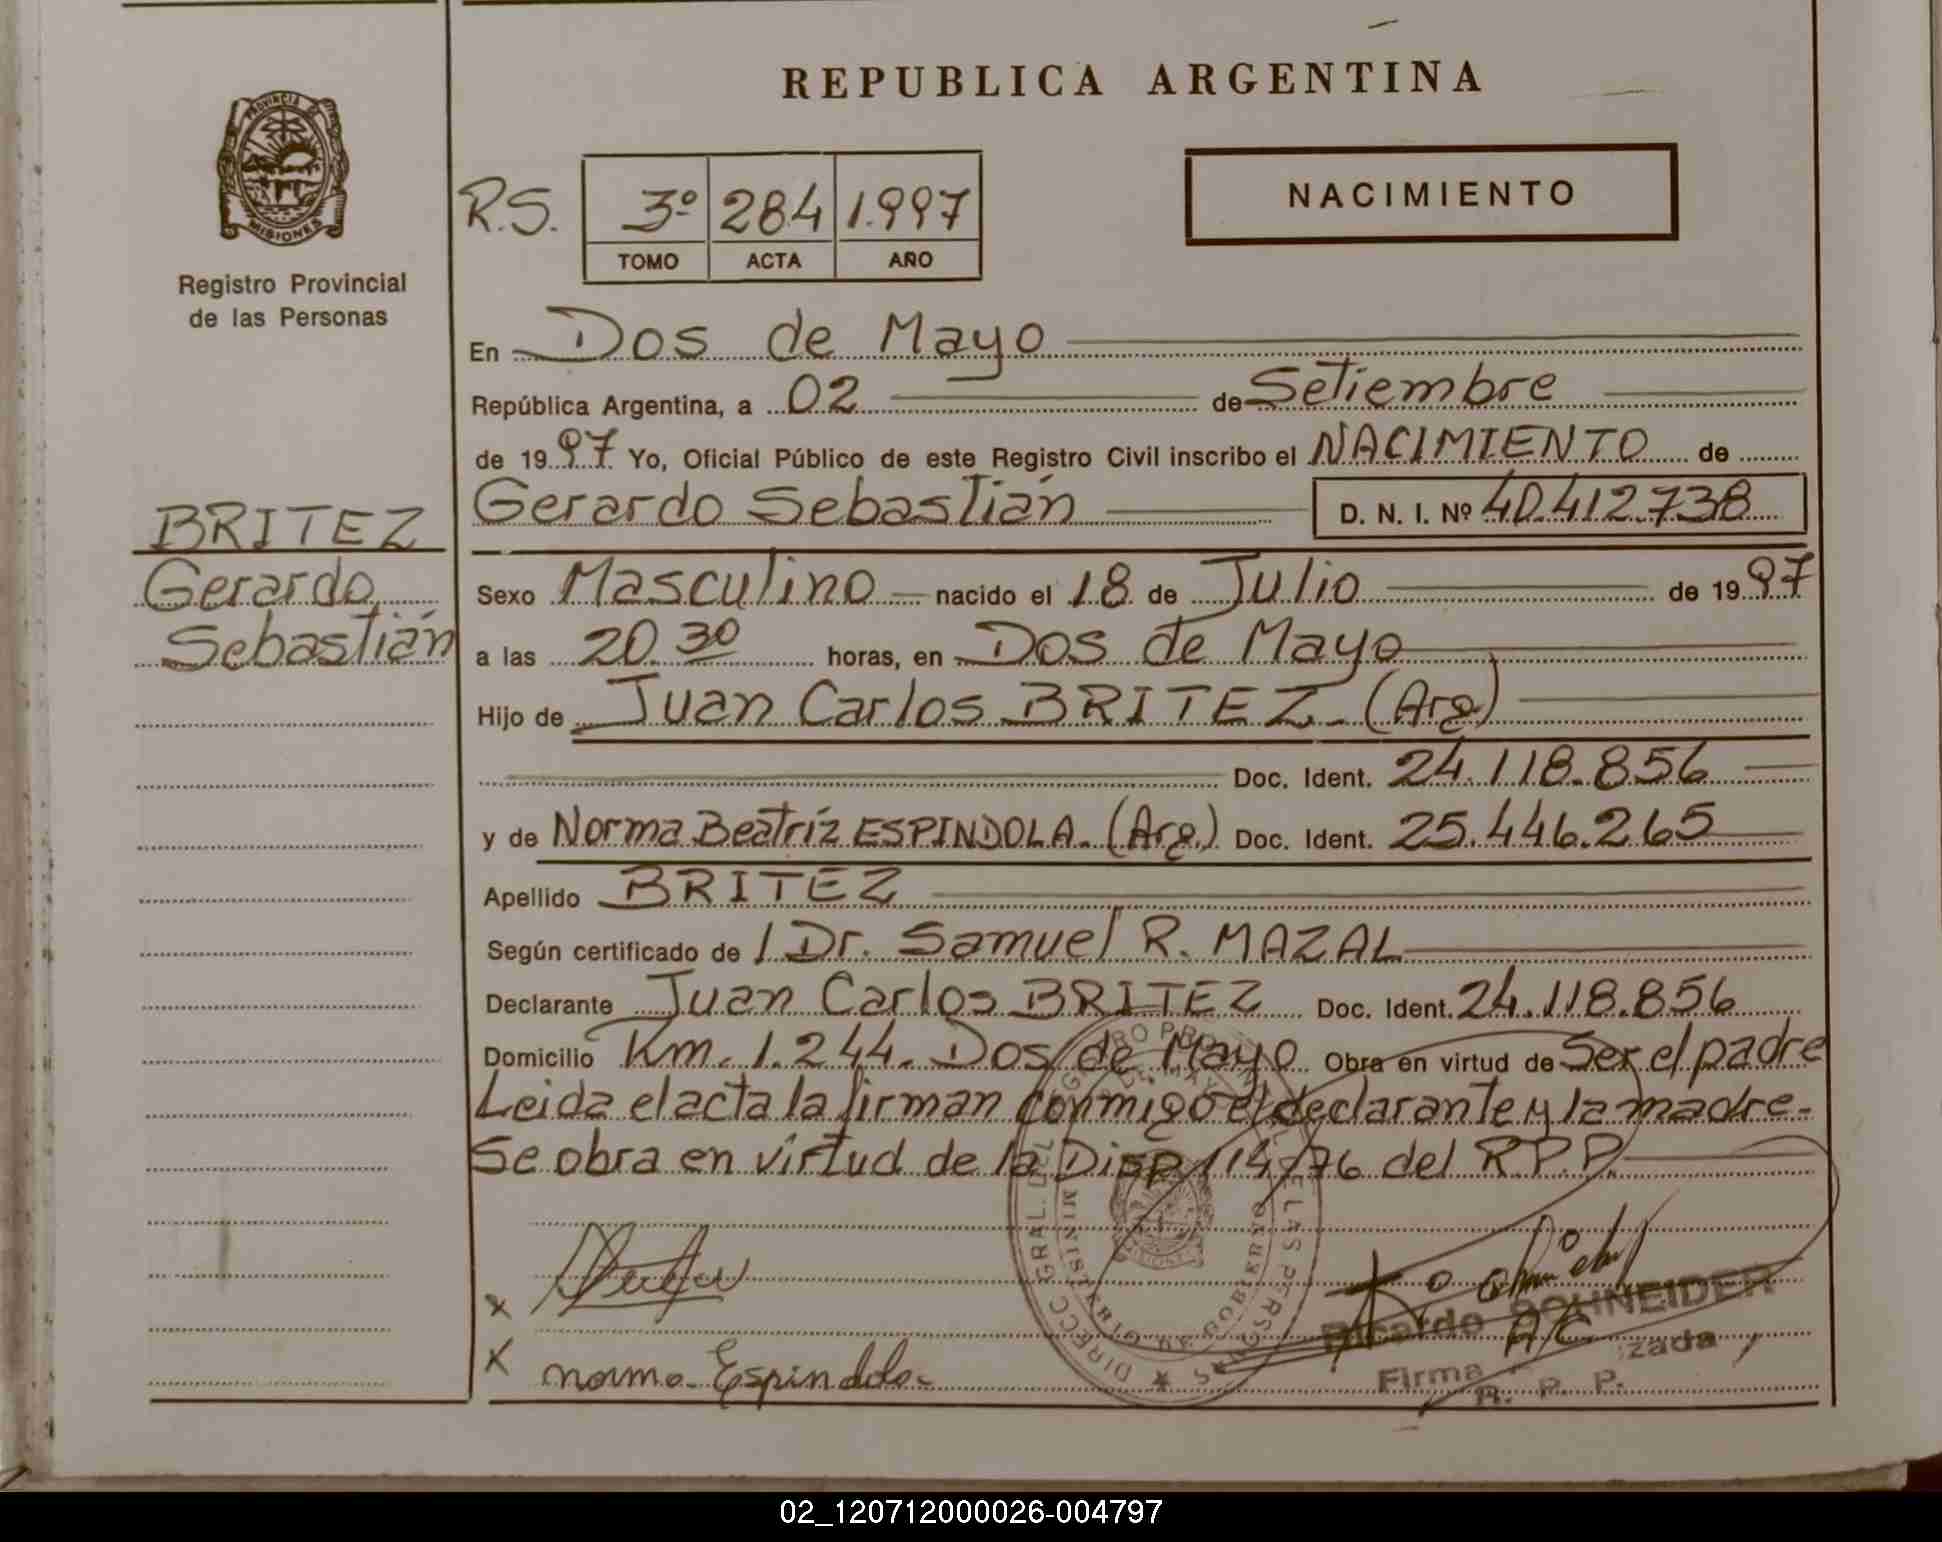 REPUBLICA ARGENTINA
PROVINCIA DE MISIONES
Registro Provincial
de las Personas
R.S. 3º 284 1.997
TOMO ACTA AÑO
NACIMIENTO
En Dos de Mayo
República Argentina, a 02 de Setiembre
de 1997 Yo, Oficial Público de este Registro Civil inscribo el NACIMIENTO de
Gerardo Sebastián D. N. I. Nº 40.412.738
BRITEZ
Gerardo
Sebastián
Sexo Masculino nacido el 18 de Julio de 1997
a las 20.30 horas, en Dos de Mayo
Hijo de Juan Carlos BRITEZ. (Arg)
Doc. Ident. 24.118.856
y de Norma Beatríz ESPINDOLA. (Arg.) Doc. Ident. 25.446.265
Apellido BRITEZ
Según certificado de / Dr. Samuel R. MAZAL
Declarante Juan Carlos BRITEZ Doc. Ident. 24.118.856
Domicilio Km. 1.244. Dos de Mayo Obra en virtud de Ser el padre
Leida el acta la firman conmigo el declarante y la madre.
Se obra en virtud de la Disp. 114/76 del R.P.P.
DIRECC. GRAL. DEL REGISTRO PROV. DE LAS PERSONAS
MINISTERIO DE GOBIERNO
x
x Norma Espindola
Ricardo SCHNEIDER
A/C
Firma zada
R. P. P.
02_120712000026-004797